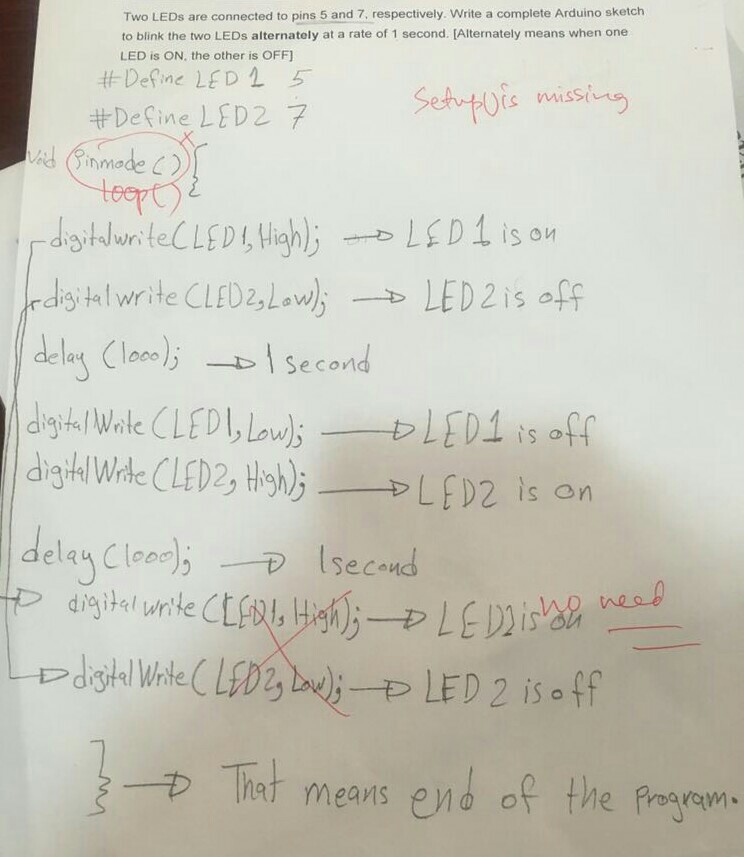 Two LEDs are connected to pins 5 and 7, respectively. Write a complete Arduino sketch
to blink the two LEDs alternately at a rate of 1 second. [Alternately means when one
LED is ON, the other is OFF]
#Define LED1 5
#Define LED2 7
Setup() is missing
Void Pinmode() {
loop()
digitalwrite(LED1, High); → LED1 is on
digitalwrite(LED2, Low); → LED2 is off
delay (1000); → 1 second
digitalWrite(LED1, Low); → LED1 is off
digitalWrite(LED2, High); → LED2 is on
delay (1000); → 1 second
digitalwrite(LED1, High); → LED1 is on no need
digitalWrite(LED2, Low); → LED2 is off
} → That means end of the program.